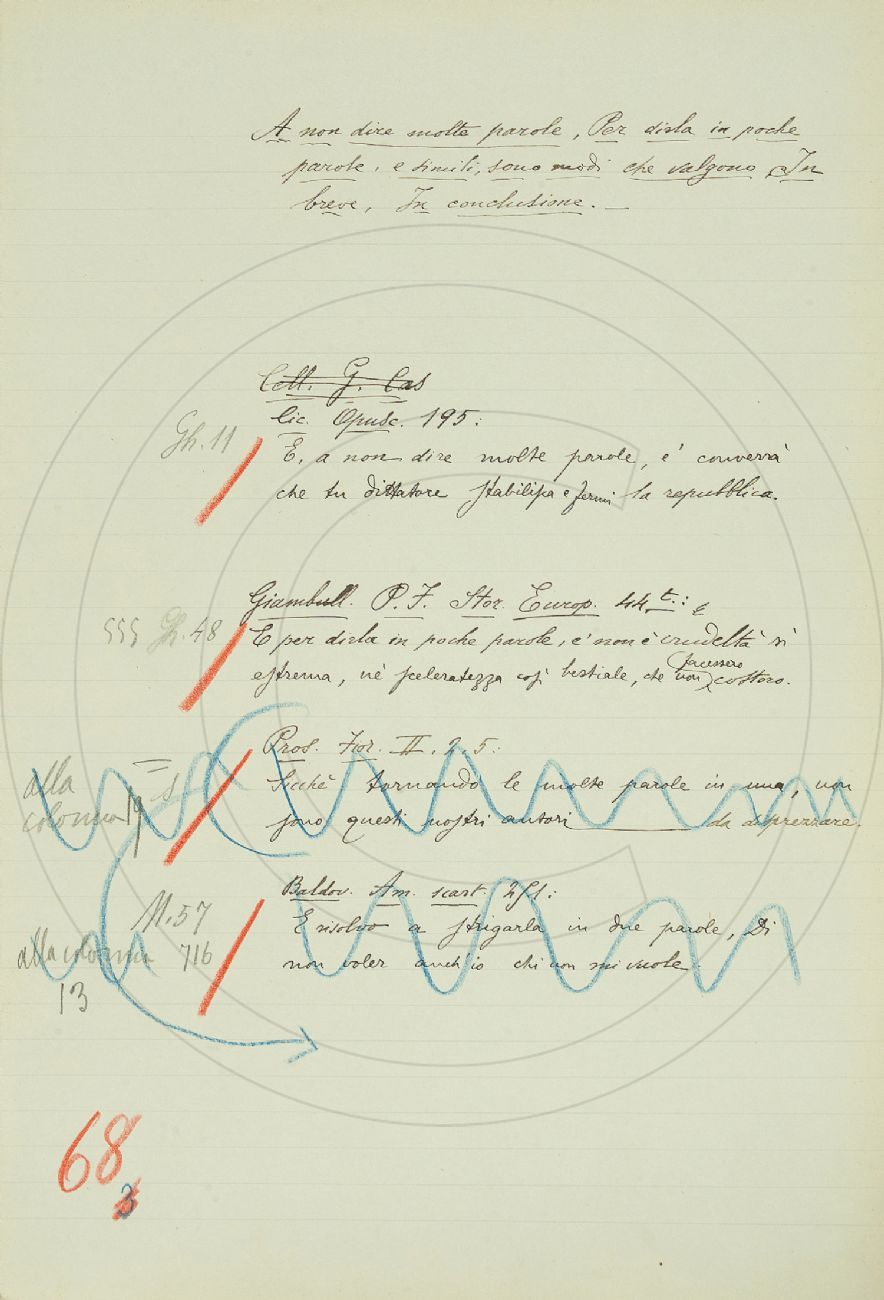 A non dire molte parole, Per dirla in poche
parole, e simili, sono modi che valgono In
breve, In conclusione. —
Coll. G. Cas
Cic. Opusc. 195:
Gh. 11
E, a non dire molte parole, e' converrà
che tu dittatore stabilisa e fermi la repubblica.
Giambull. P. F. Stor. Europ. 44t.:
555 48
E per dirla in poche parole, e' non è crudeltà sì
estrema, nè sceleratezza così bestiale, che non facessero costoro.
Pros. Fior. II. 2. 5:
alla
colonna 19
Sicchè tornando le molte parole in una, non
sono questi nostri autori da disprezzare.
Baldov. Am. scart. 251:
M. 57
E risolvo a strigarla in due parole, Di
alla colonna 716
non voler anch'io chi non mi vuole.
13
68
3